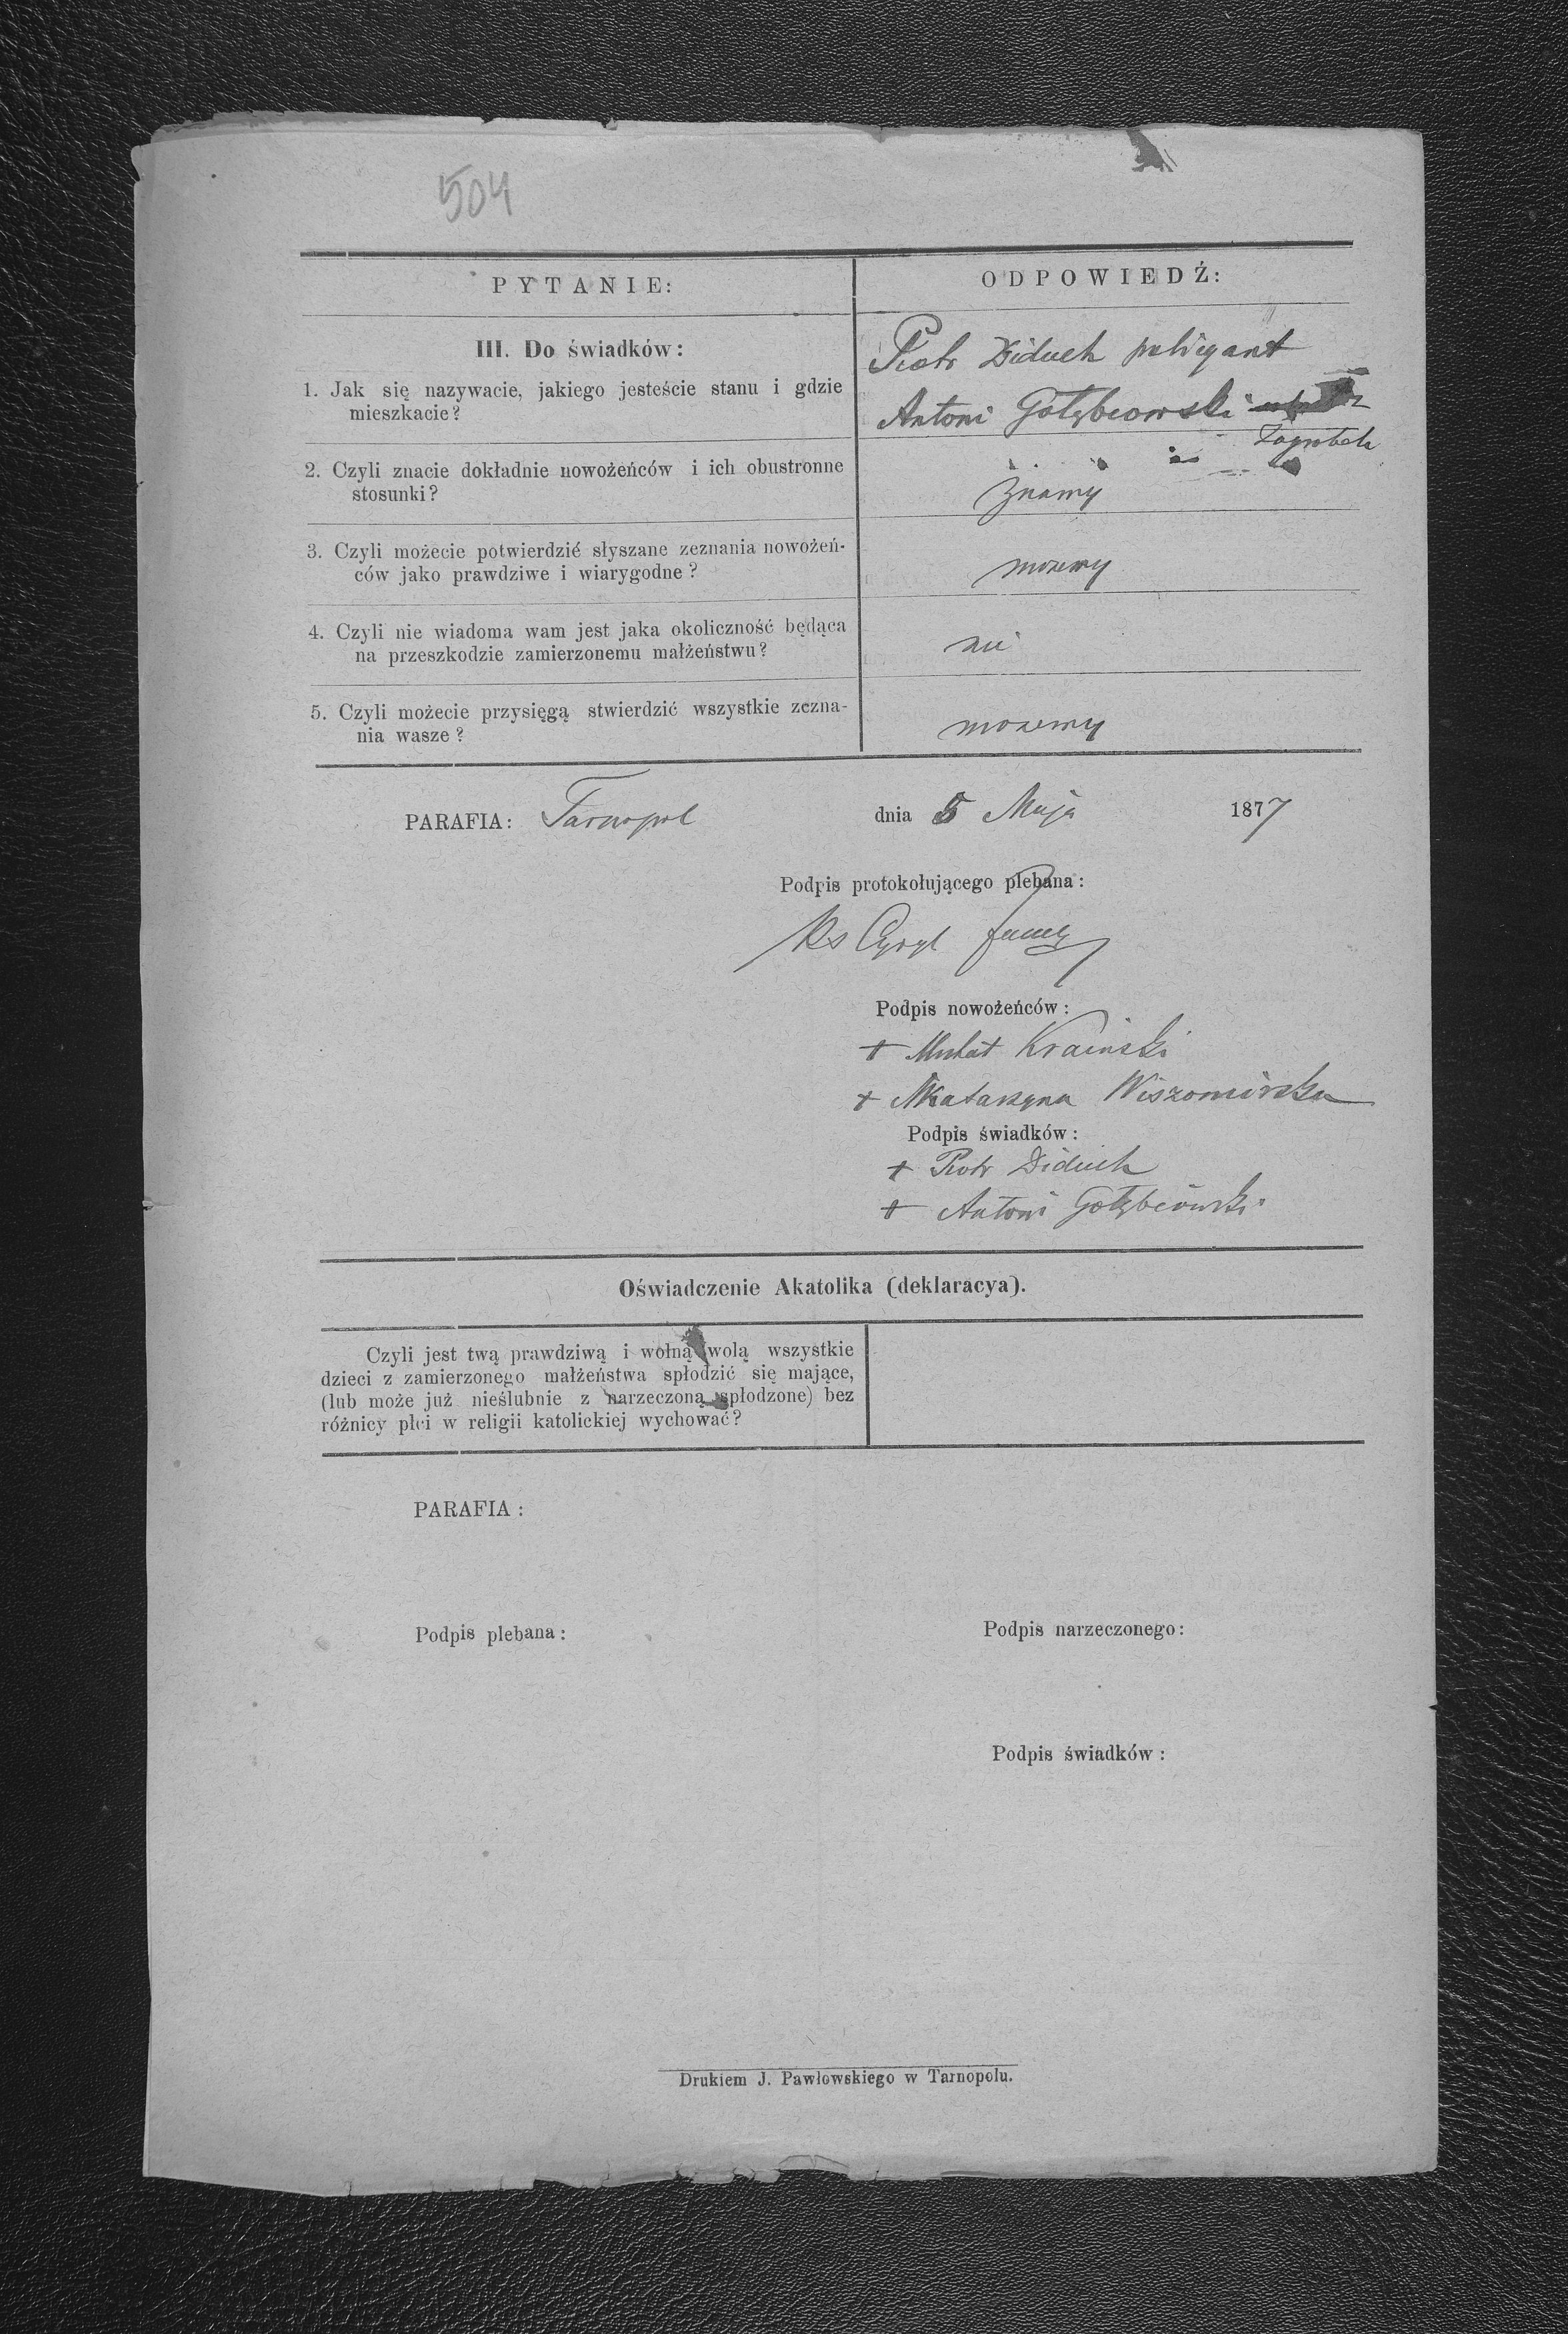 504
PYTANIE:
ODPOWIEDŹ:
III. Do świadków:
1. Jak się nazywacie, jakiego jesteście stanu i gdzie
mieszkacie?
Piotr Diduch
Antoni Gołębiowski
2. Czyli znacie dokładnie nowożeńców i ich obustronne
stosunki?
Znamy
3. Czyli możecie potwierdzić słyszane zeznania nowożeń-
ców jako prawdziwe i wiarygodne?
możemy
4. Czyli nie wiadoma wam jest jaka okoliczność będąca
na przeszkodzie zamierzonemu małżeństwu?
nie
5. Czyli możecie przysięgą stwierdzić wszystkie zezna-
nia wasze?
możemy
PARAFIA: Tarnopol dnia 5 Maja 1877
Podpis protokołującego plebana:
Ks Cyryl
Podpis nowożeńców:
+ Michał Kraiński
+ Katarzyna Wiszomirska
Podpis świadków:
+ Piotr Diduch
+ Antoni Gołębiowski
Oświadczenie Akatolika (deklaracya).
Czyli jest twą prawdziwą i wolną wolą wszystkie
dzieci z zamierzonego małżeństwa spłodzić się mające,
(lub może już nieślubnie z narzeczoną spłodzone) bez
różnicy płci w religii katolickiej wychować?
PARAFIA:
Podpis plebana:
Podpis narzeczonego:
Podpis świadków:
Drukiem J. Pawłowskiego w Tarnopolu.